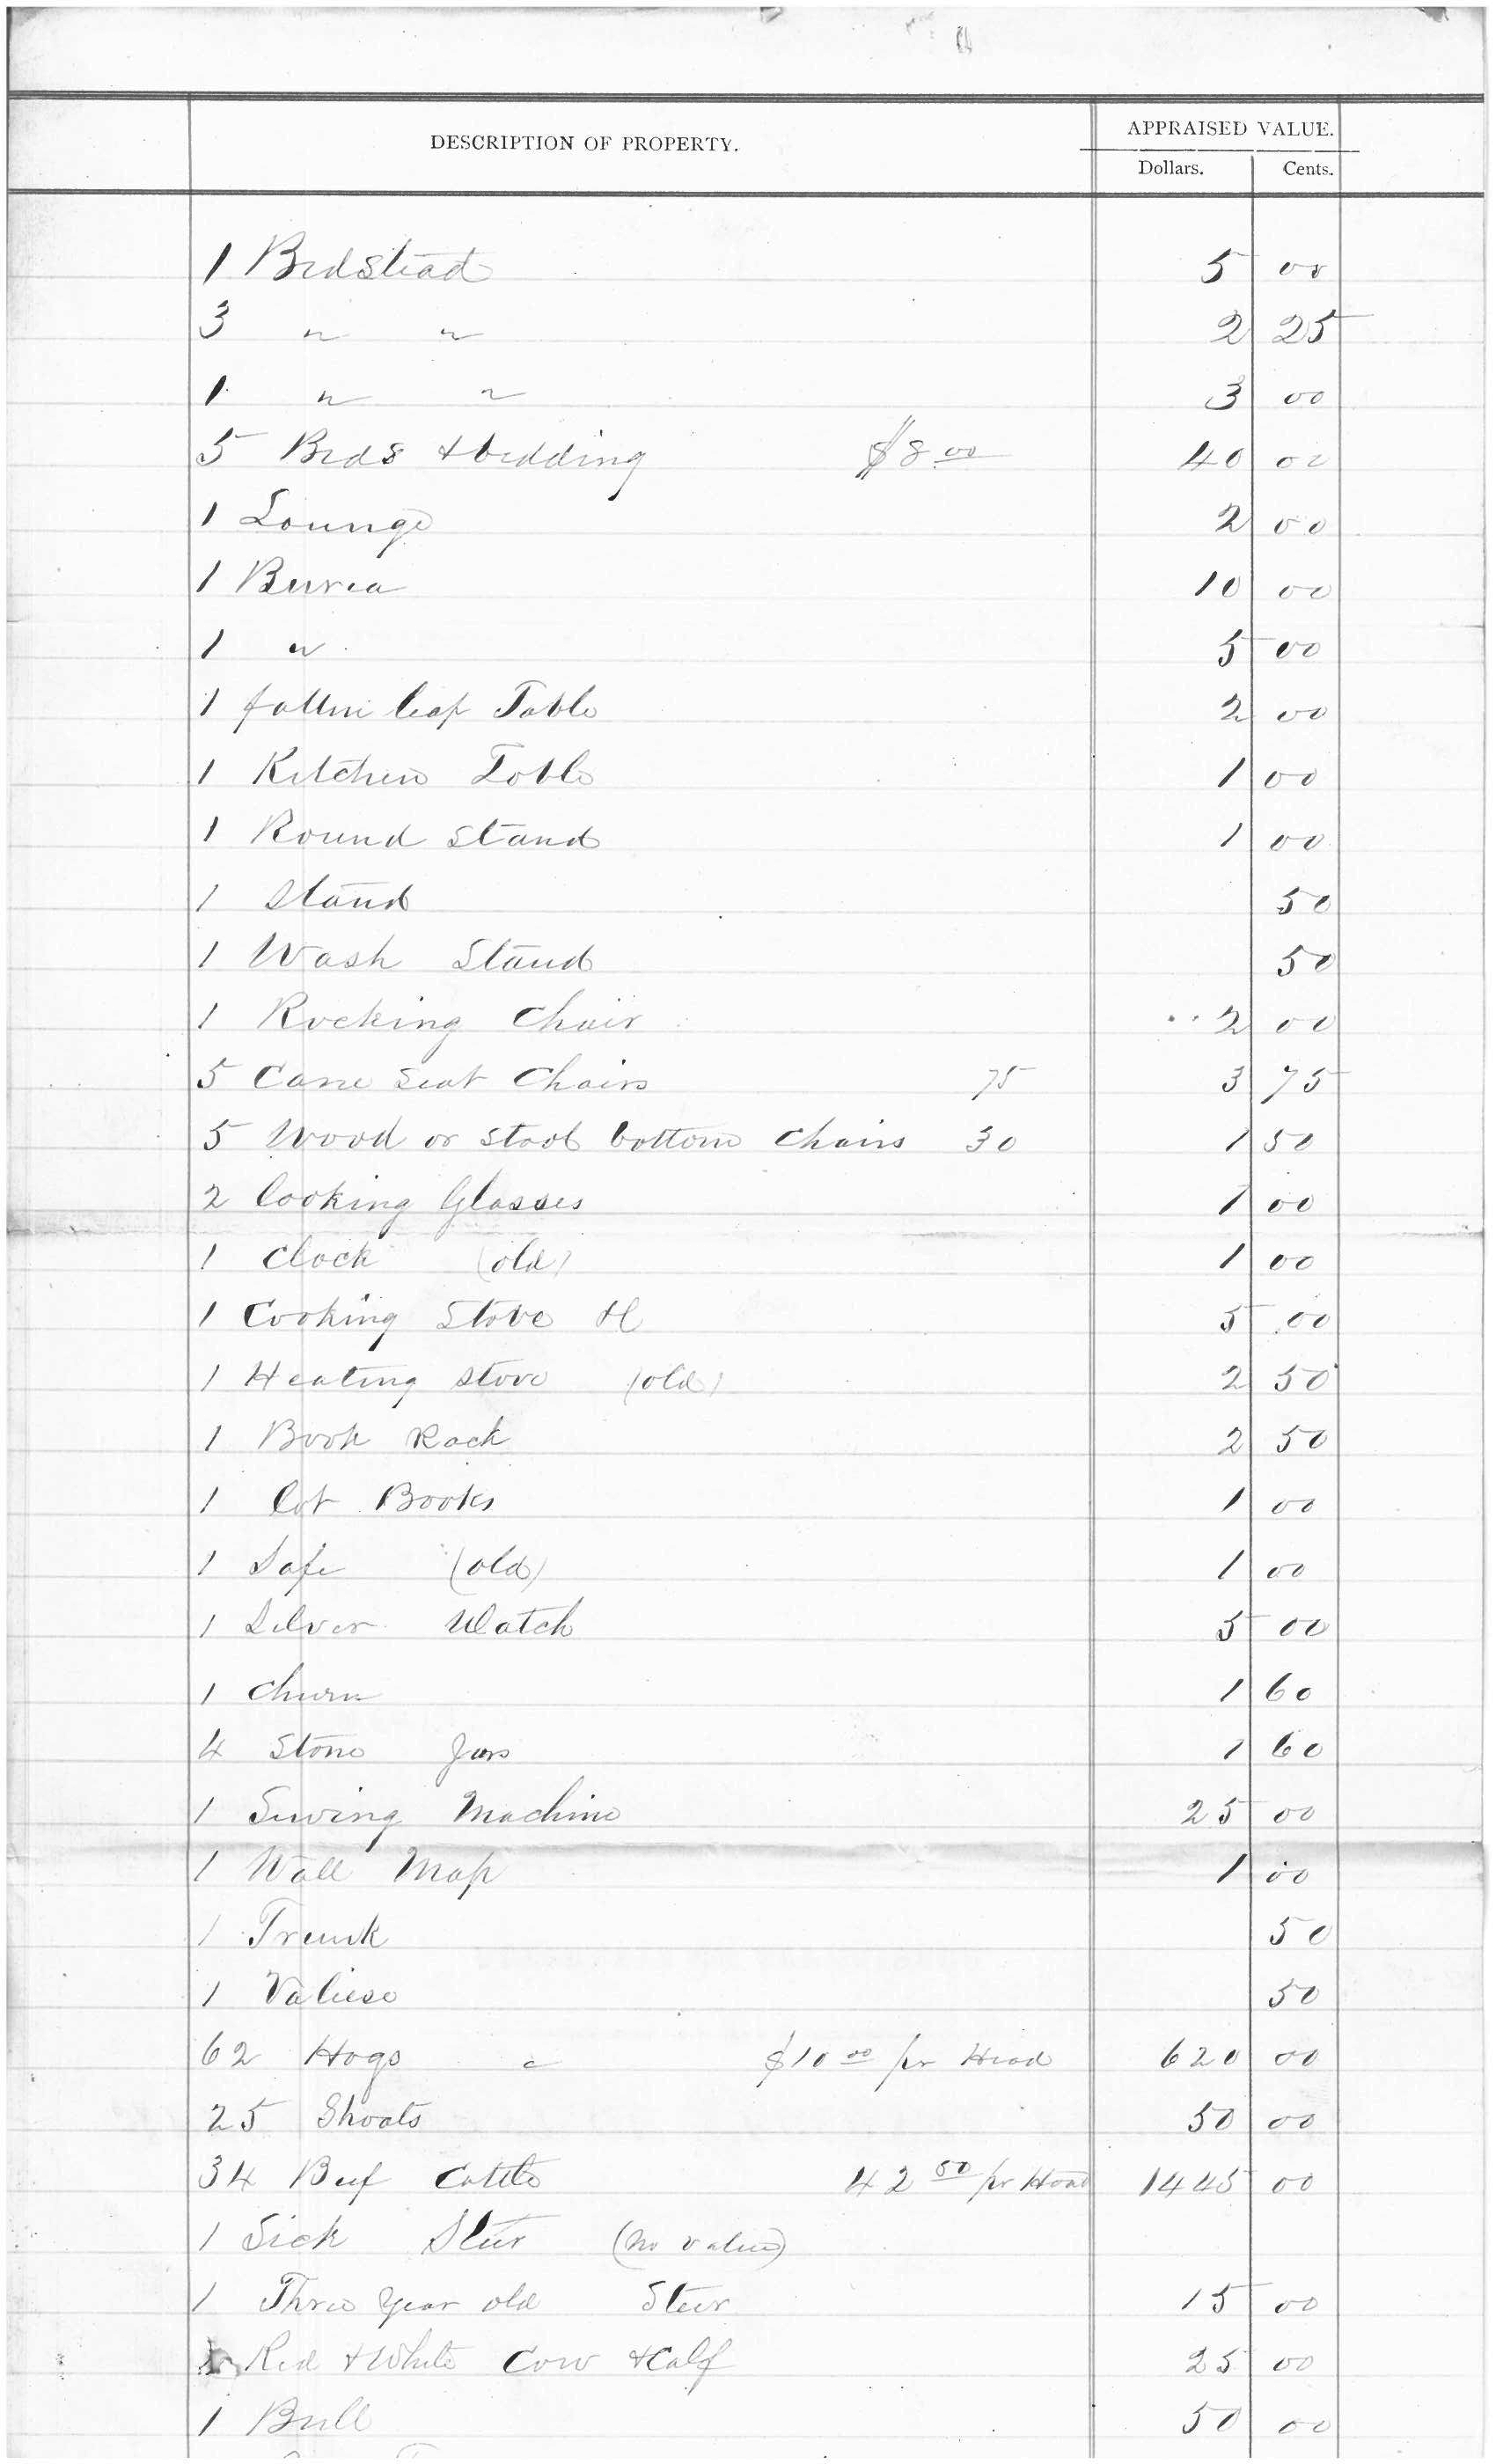 DESCRIPTION OF PROPERTY.
APPRAISED VALUE.
Dollars. Cents.
1 Bedstead 5 00
3 " " 2 25
1 " " 3 00
5 Beds & bedding $8.00 40 00
1 Lounge 2 00
1 Burea 10 00
1 " 5 00
1 leaf Table 2 00
1 Kitchen Table 1 00
1 Round Stand 1 00
1 Stand 50
1 Wash Stand 50
1 Rocking Chair 2 00
5 Cane Seat Chairs 75 3 75
5 Wood or bottom Chairs 30 1 50
2 looking Glasses 1 00
1 Clock (old) 1 00
1 Cooking Stove 5 00
1 Heating Stove (old) 2 50
1 Book Rack 2 50
1 lot Books 1 00
1 Safe (old) 1 00
1 Silver Watch 5 00
1 Churn 1 60
4 Stone Jars 1 60
1 Sewing Machine 25 00
1 Wall Map 1 00
1 Trunk 50
1 Valiese 50
62 Hogs $10 00 pr Head 620 00
25 Shoats 50 00
34 Beef Cattle 42 50 pr Head 1445 00
1 Sick Steer (no value)
1 Three year old Steer 15 00
Red & White Cow & Calf 25 00
1 Bull 50 00